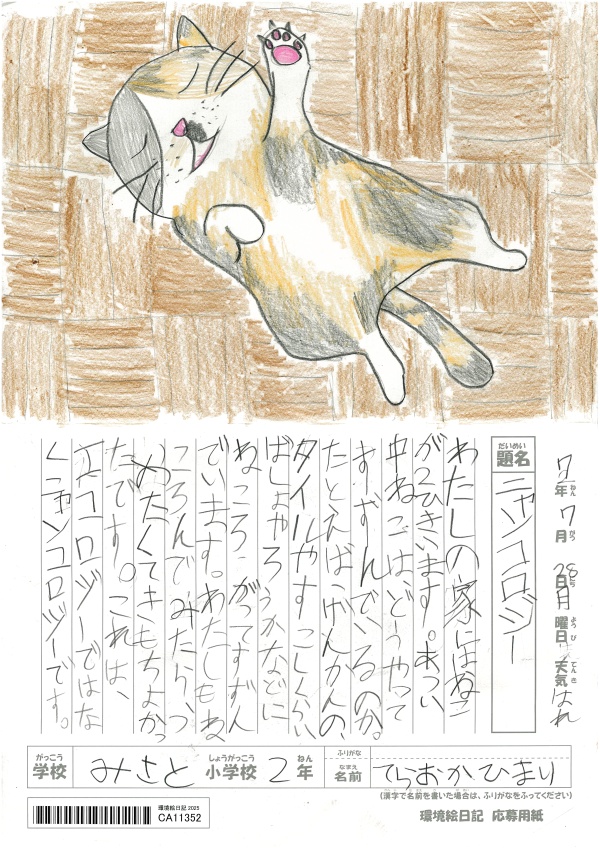 7年7月28日月曜日 天気はれ
題名 ニャンコロジー
わたしの家にはねこ
が2ひきいます。あつい
中ねこは、どうやって
すずんでいるのか。
たとえばげんかんの、
タイルやすこしくらい
ばしょやろうかなどに
ねっころがってすずん
でいます。わたしもね
ころんでみたら、つ
めたくてきもちよかっ
たです。これは、
エコロジーではな
くニャンコロジーです。
学校 みさと 小学校 2年 名前 てらおかひまり
(漢字で名前を書いた場合は、ふりがなをふってください)
環境絵日記 2025
CA11352
環境絵日記 応募用紙